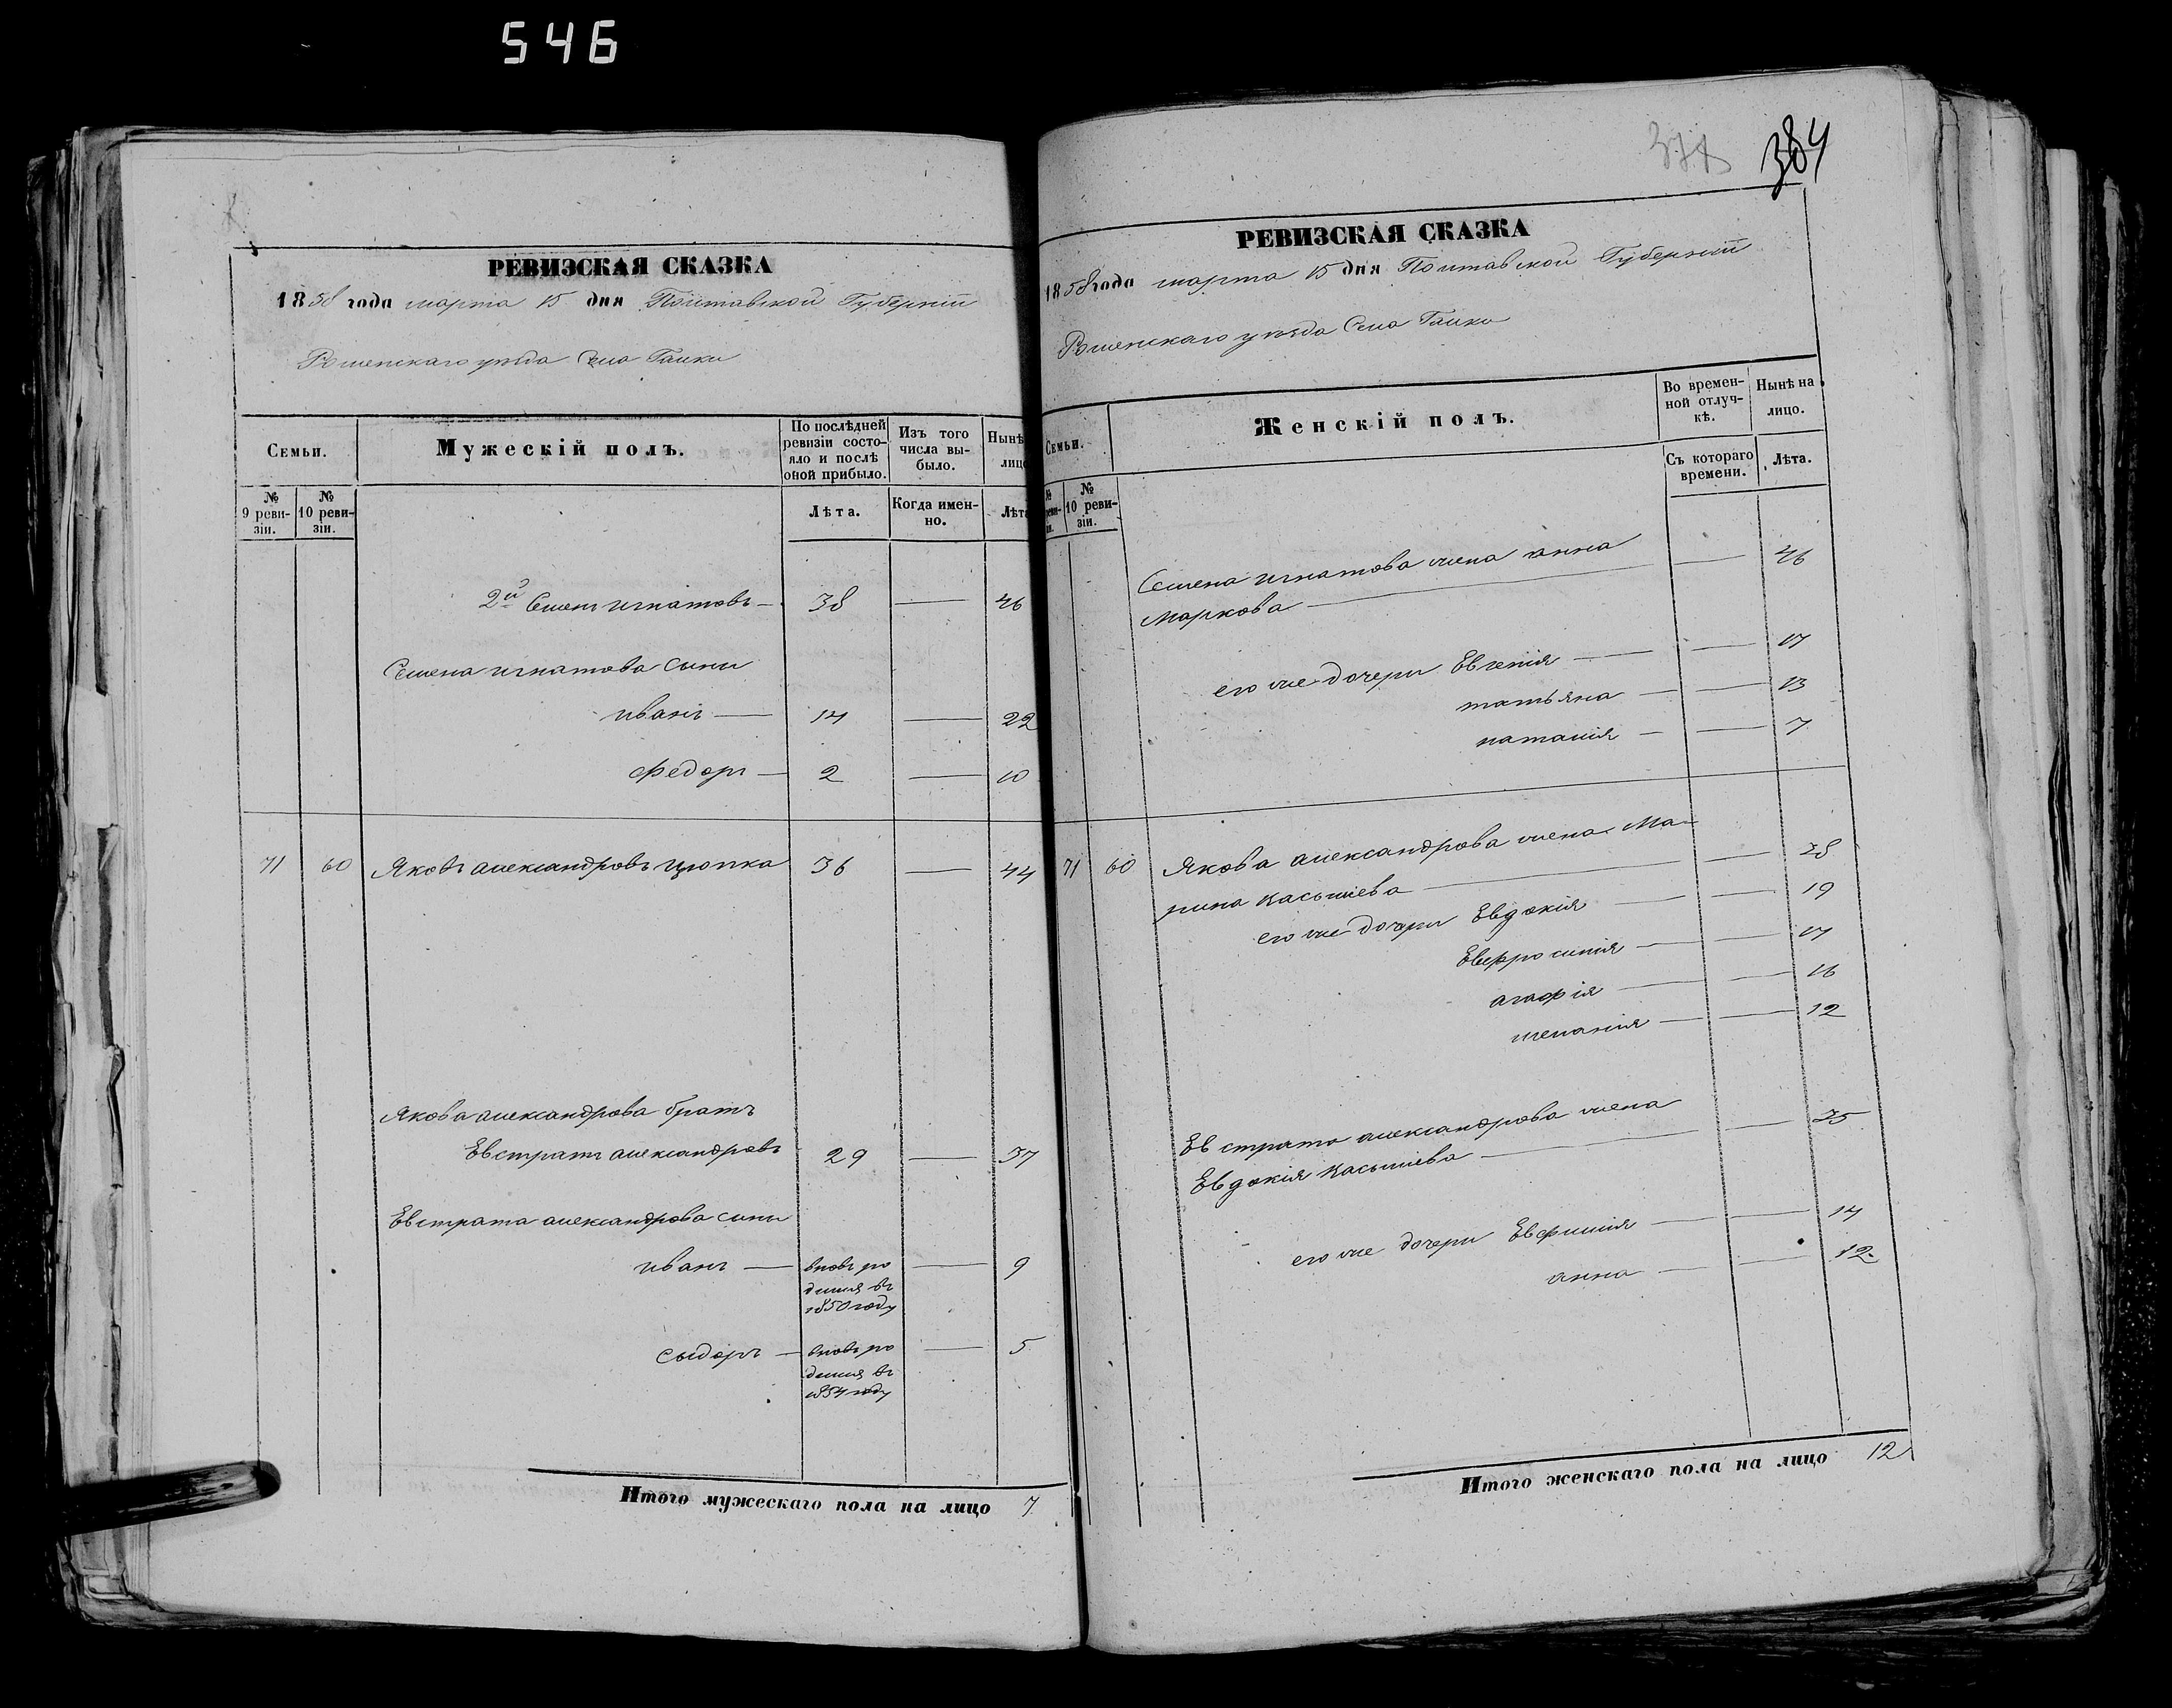 546
РЕВИЗСКАЯ СКАЗКА
1858 года марта 15 дня Полтавской Губернiи
Роменскаго уѣзда Села Галки
Семьи.
Мужескiй полъ.
По послѣдней ревизiи состо-
яло и послѣ
оной прибыло.
Изъ того
числа вы-
было.
Нынѣ
лицо
№
9 реви-
зiи.
№
10 реви-
зiи.
Лѣта.
Когда имен-
но.
Лѣта
2й Семенъ игнатовъ — 38 — 46
Семена игнатова сыни
иванъ — 14 — 22
Федоръ — 2 — 10
71 60 Яковъ александровъ Цюпка 36 — 44
Якова александрова братъ
Евстратъ александровъ 29 — 37
Евстрата александрова сыни
иванъ — вновь ро — 9
дился въ
1850 году
Сыдоръ — вновь ро — 5
дился въ
1854 году
Итого мужескаго пола на лицо 7
384
РЕВИЗСКАЯ СКАЗКА
1858 года марта 15 дня Полтавской Губернiи
Роменскаго уѣзда Села Галки
Семьи.
Женскiй полъ.
Во времен-
ной отлуч-
кѣ.
Нынѣ на
лицо.
№
10 реви-
зiи.
Съ котораго
времени.
Лѣта.
Семена игнатова жена анна — 46
Маркова —
его же дочери Евгенiя — — 17
татьяна — — 13
наталiя — — 7
71 60 Якова александрова жена Ма-
рина Касьянiева — — 38
его же дочери Евдокiя — — 19
Евфросинiя — — 17
агафiя — — 16
меланiя — — 12
Евстрата александрова жена
Евдокiя Касьянiева — — 35
его же дочери Евфимiя — — 14
анна — — 12
Итого женскаго пола на лицо 12